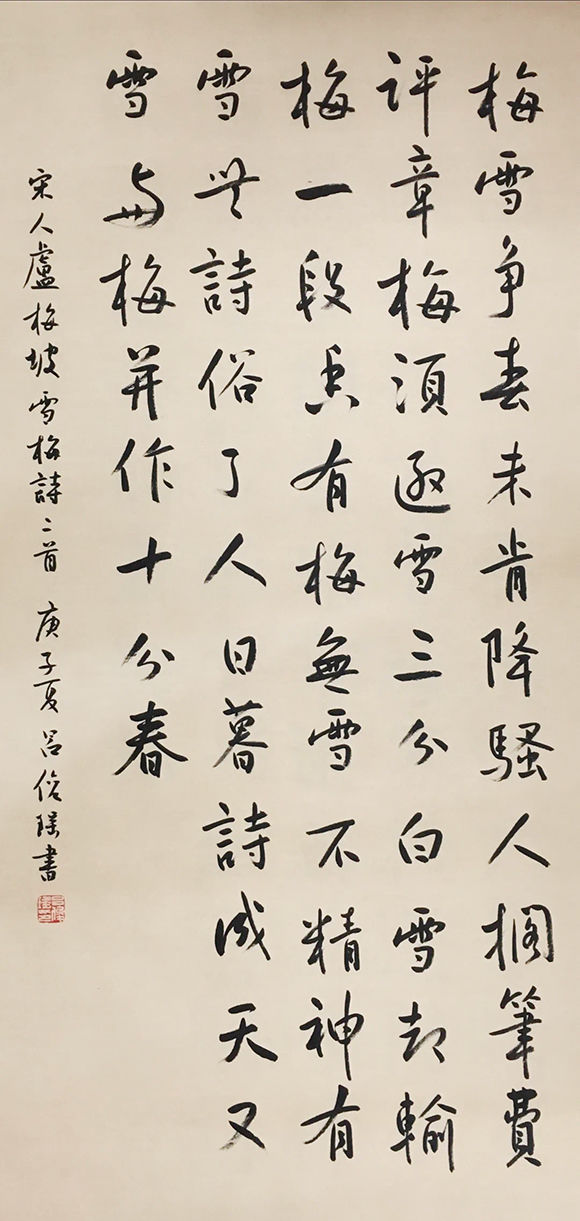 梅雪争春未肯降騷人擱筆費
評章梅須遜雪三分白雪却輸
梅一段香有梅無雪不精神有
雪無詩俗了人日暮詩成天又
雪與梅并作十分春
宋人盧梅坡雪梅詩二首 庚子夏 呂俊 書